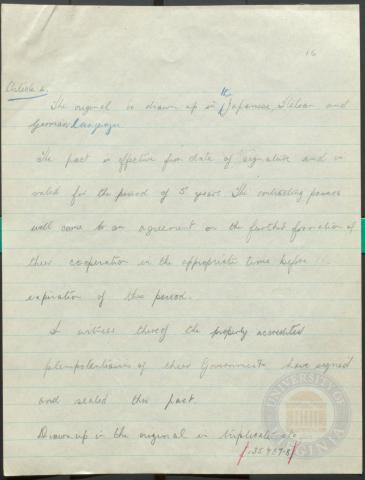 16
Article 4.
The original is drawn up in the Japanese, Italian and
German Language
The pact is effective from date of signature and is
valid for the period of 5 years The contracting powers
will come to an agreement on the further formation of
their cooperation in the appropriate time before
expiration of this period.
In witness thereof the properly accredited
plenipotentiaries of their Governments have signed
and sealed this pact.
Drawn up in the original in triplicate etc
UNIVERSITY OF VIRGINIA